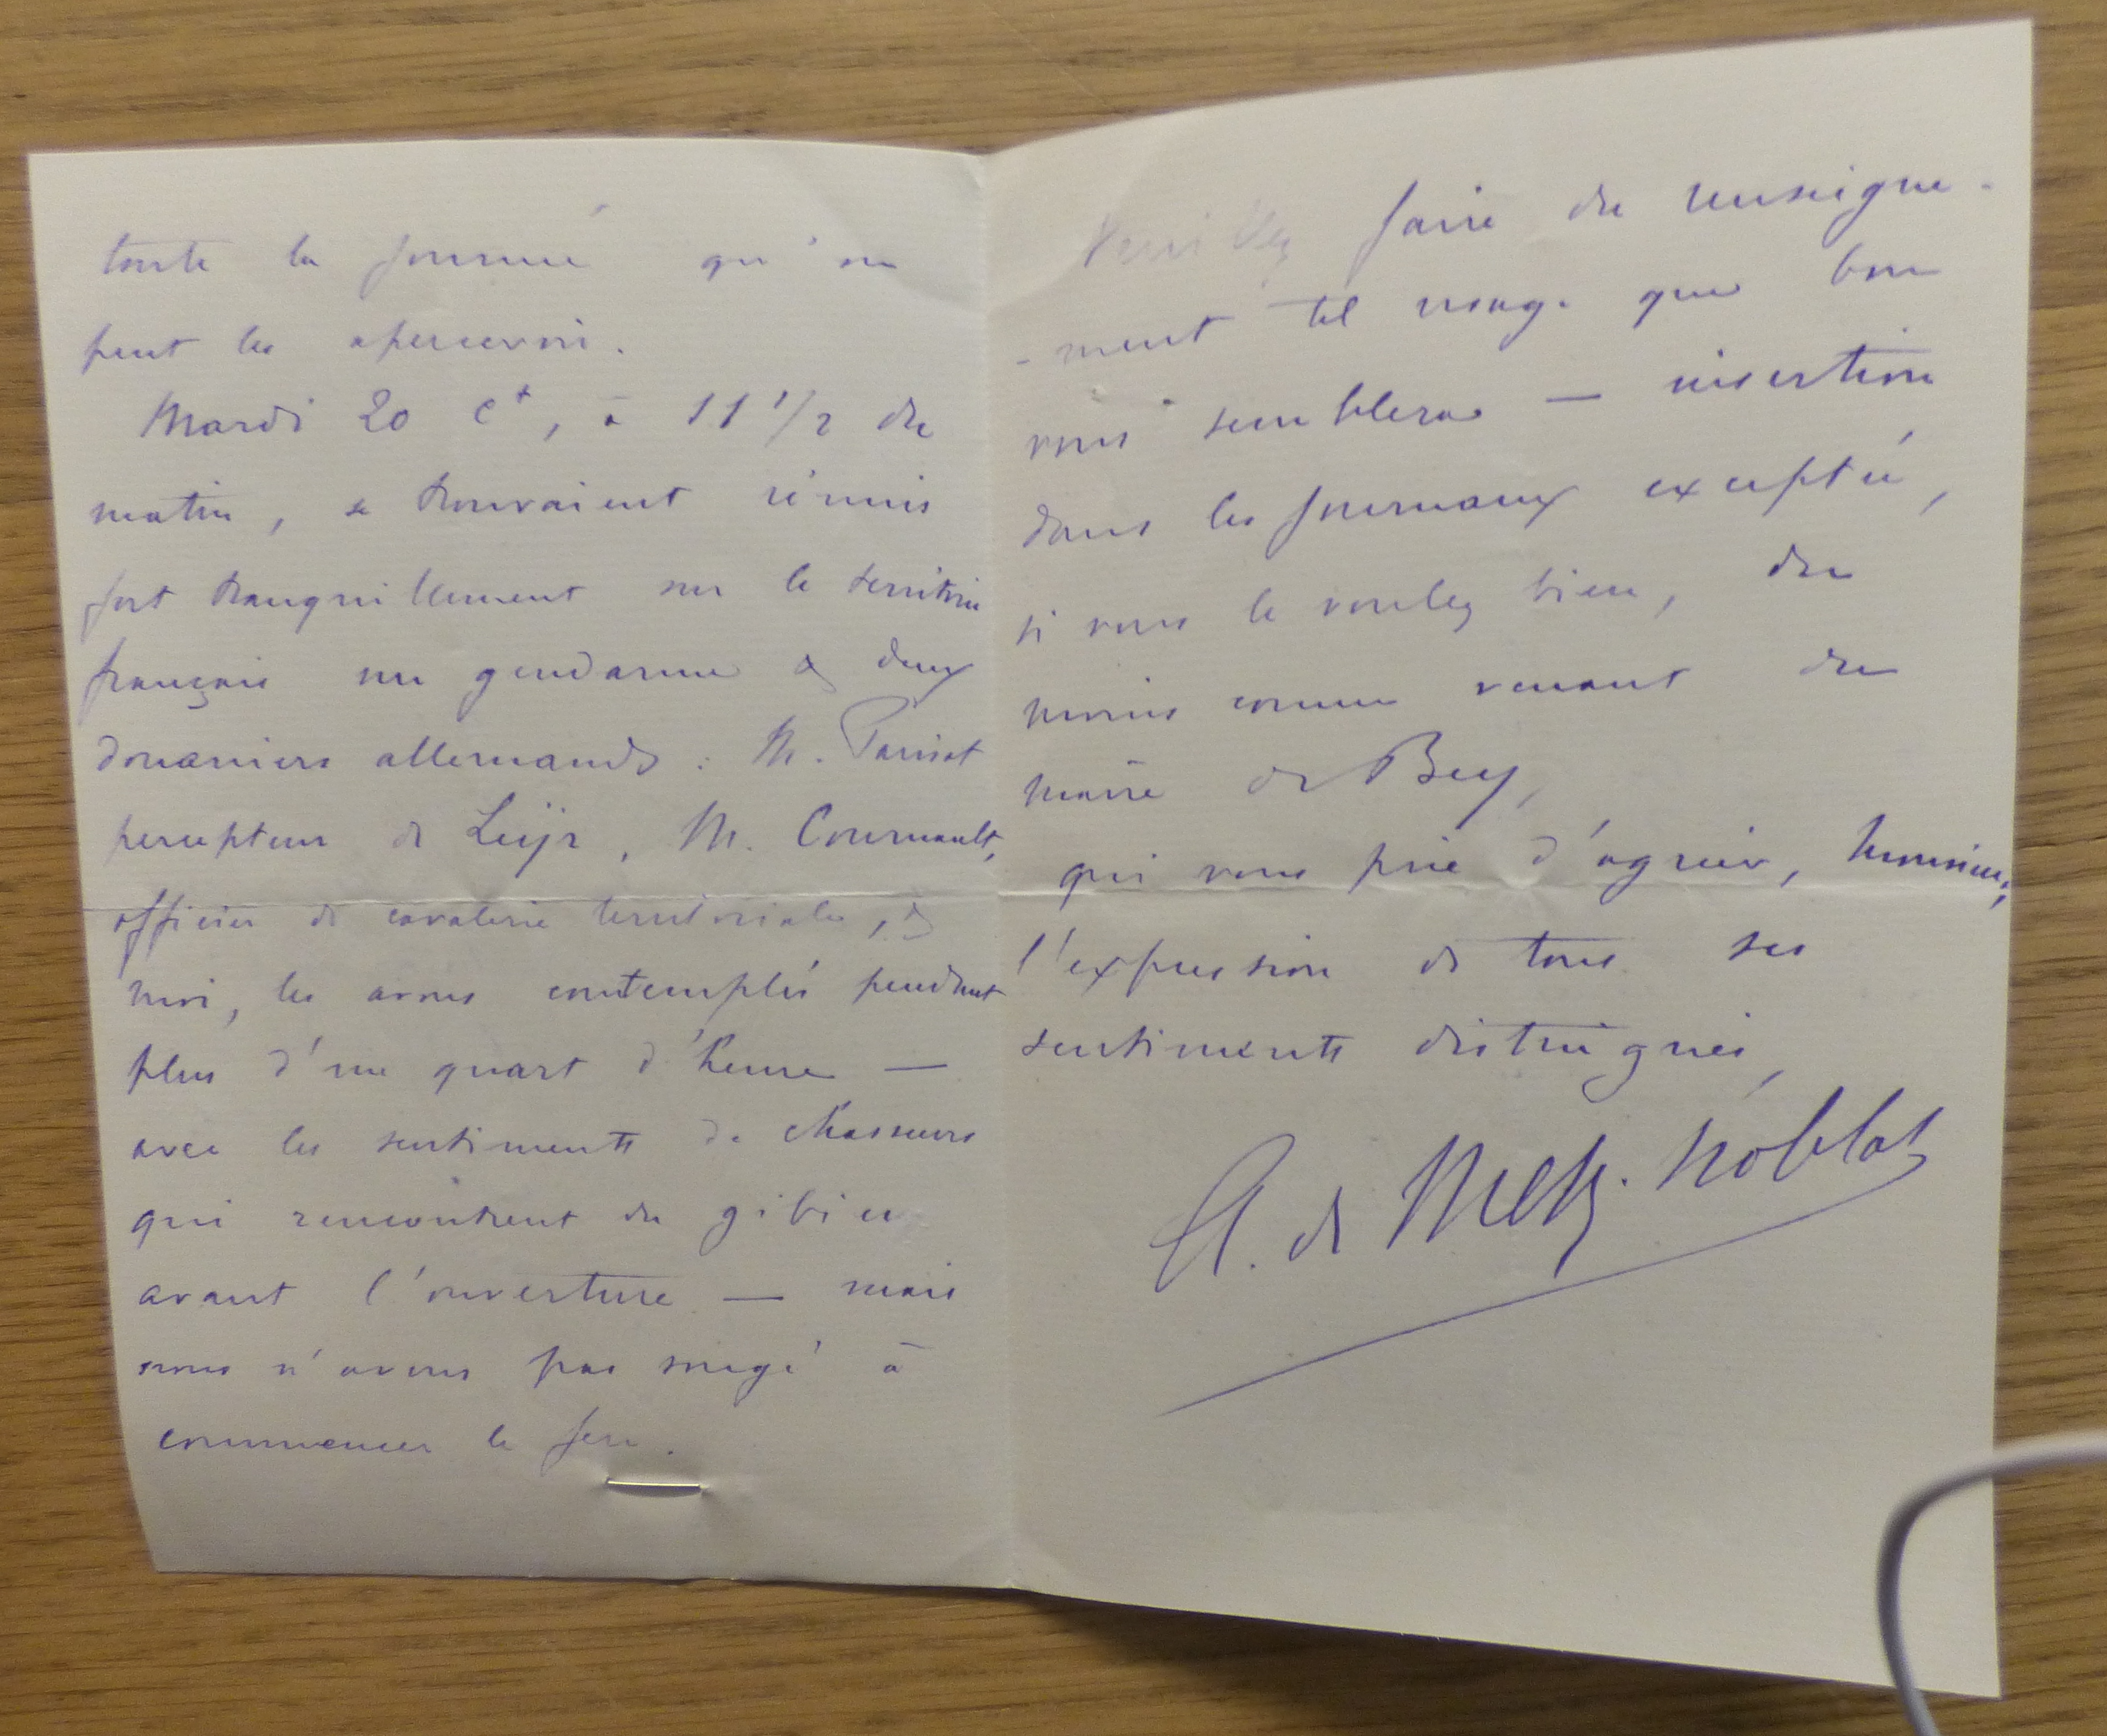 toute la journée qu'on
peut les apercevoir.
Mardi 20 Ct, à 11 1/2 du
matin, se trouvaient réunis
fort tranquillement sur le territoire
français un gendarme & deux
douaniers allemands : M. Parisot
percepteur de Leyr, M. Cournault,
officier de cavalerie territoriale, &
moi, les avons contemplés pendant
plus d'un quart d'heure —
avec les sentiments de chasseurs
qui rencontrent du gibier
avant l'ouverture — mais
nous n'avons pas songé à
commencer le feu.
Veuillez faire du renseigne-
-ment tel usage que bon
vous semblera — insertion
dans les journaux exceptée,
si vous le voulez bien, du
moins comme venant du
maire de Bey,
qui vous prie d'agréer, Monsieur,
l'expression de tous ses
sentiments distingués,
A. de Metz-Noblat